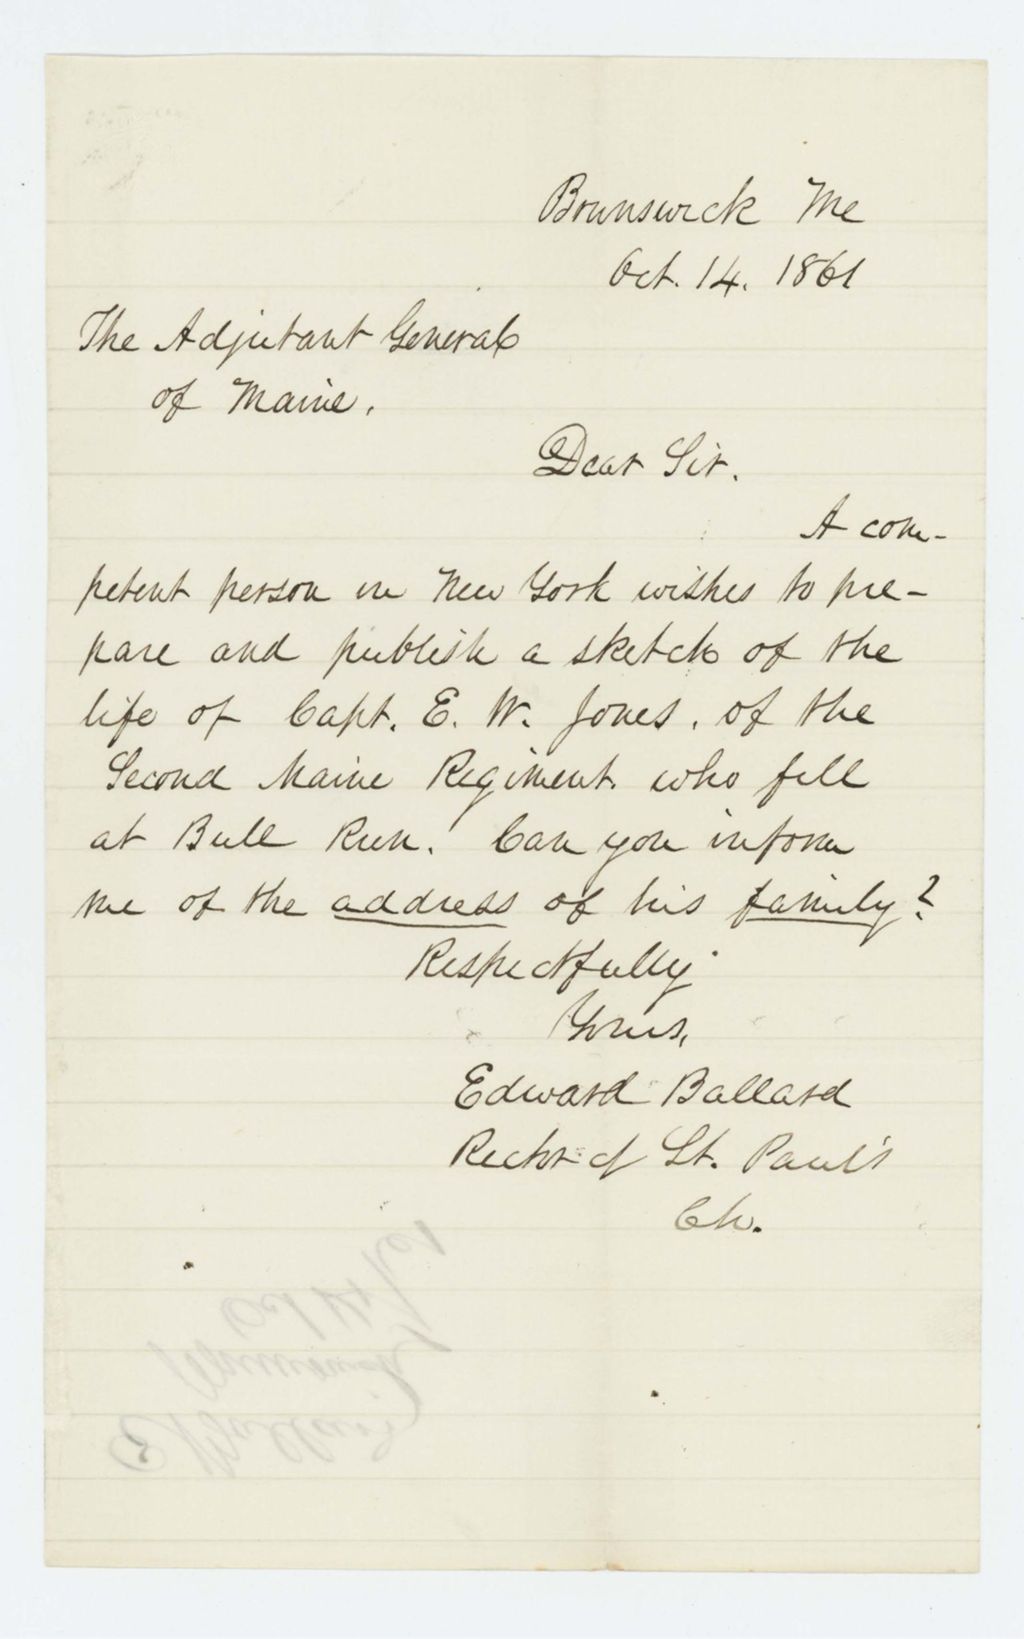 Brunswick Me
Oct. 14. 1861
The Adjutant General
of Maine.
Dear Sir.
A com-
petent person in New York wishes to pre-
pare and publish a sketch of the
life of Capt. E. W. Jones, of the
Second Maine Regiment. who fell
at Bull Run. Can you inform
me of the address of his family?
Respectfully
Yours,
Edward Ballard
Rector of St. Paul's
Ch.
E Ballard
Brunswick
Oct 14